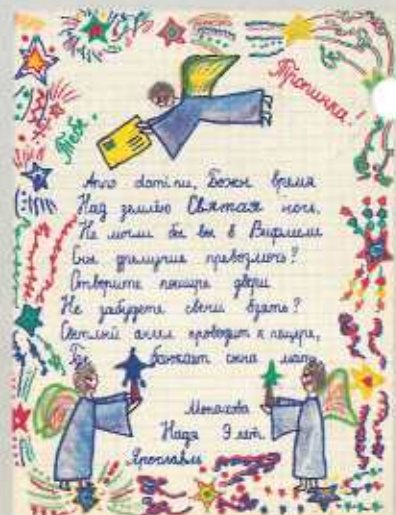 Тебе,
Тропинка!
Anno domini, Божье время
Над землёю Святая ночь,
Не могли бы вы в Вифлееме
Сны дремучие превозмочь?
Отворите пошире двери
Не забудете свечи взять?
Светлый ангел проводит к пещере,
Где баюкает сына мать
Монахова
Надя 9 лет.
Ярославль